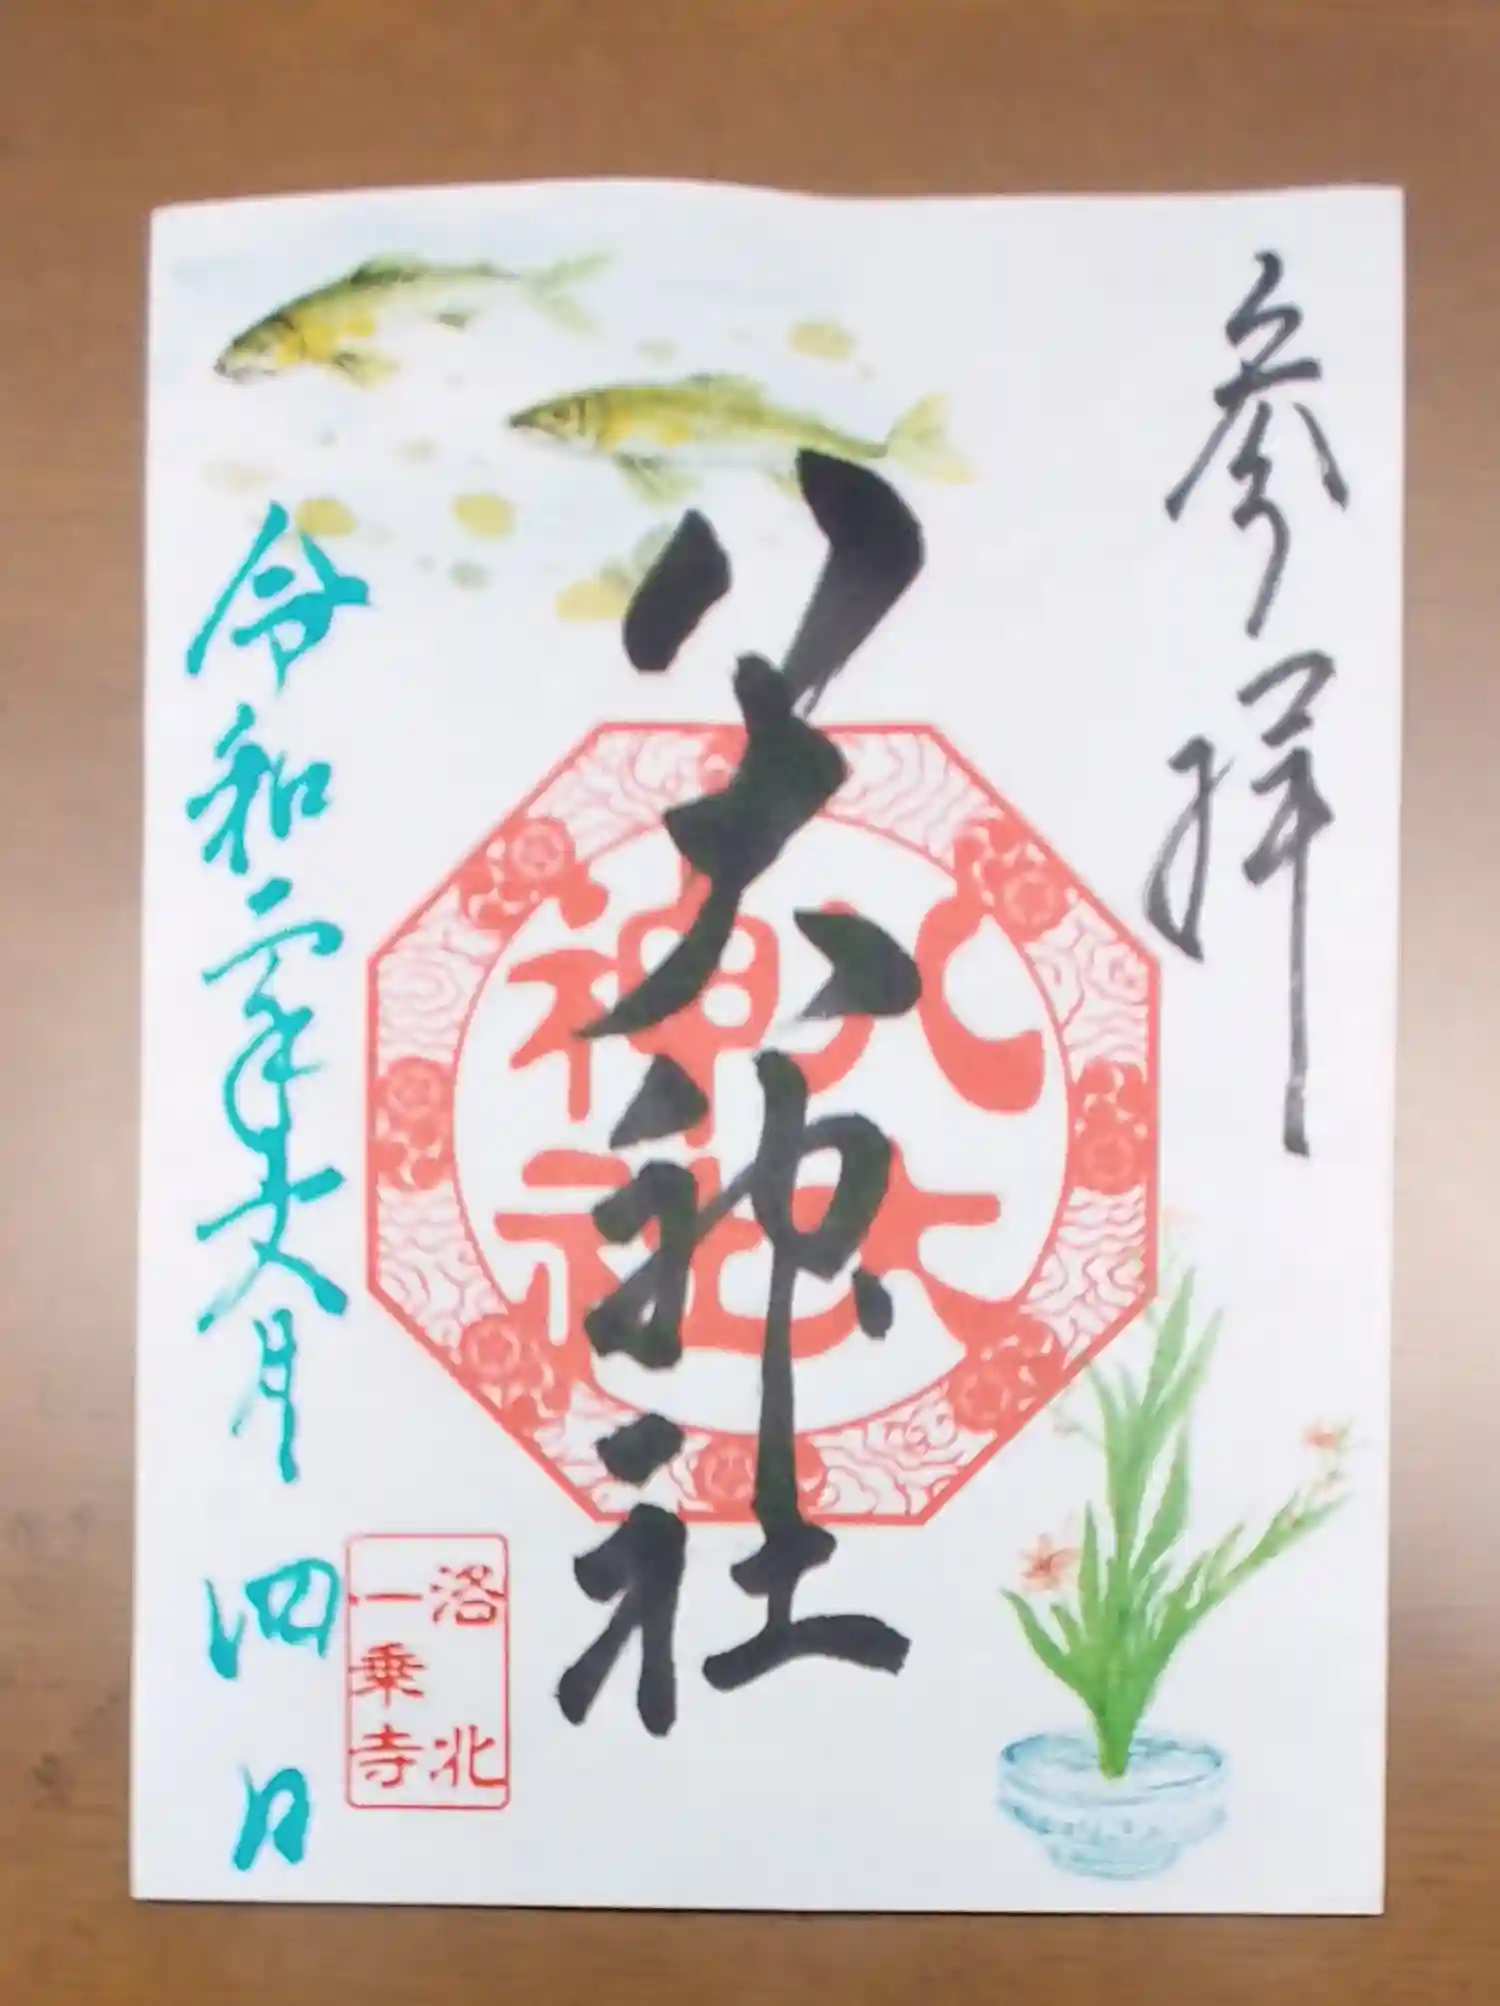 参拝
八大神社
八大
神社
令和 年文月四日
洛北
一乗寺